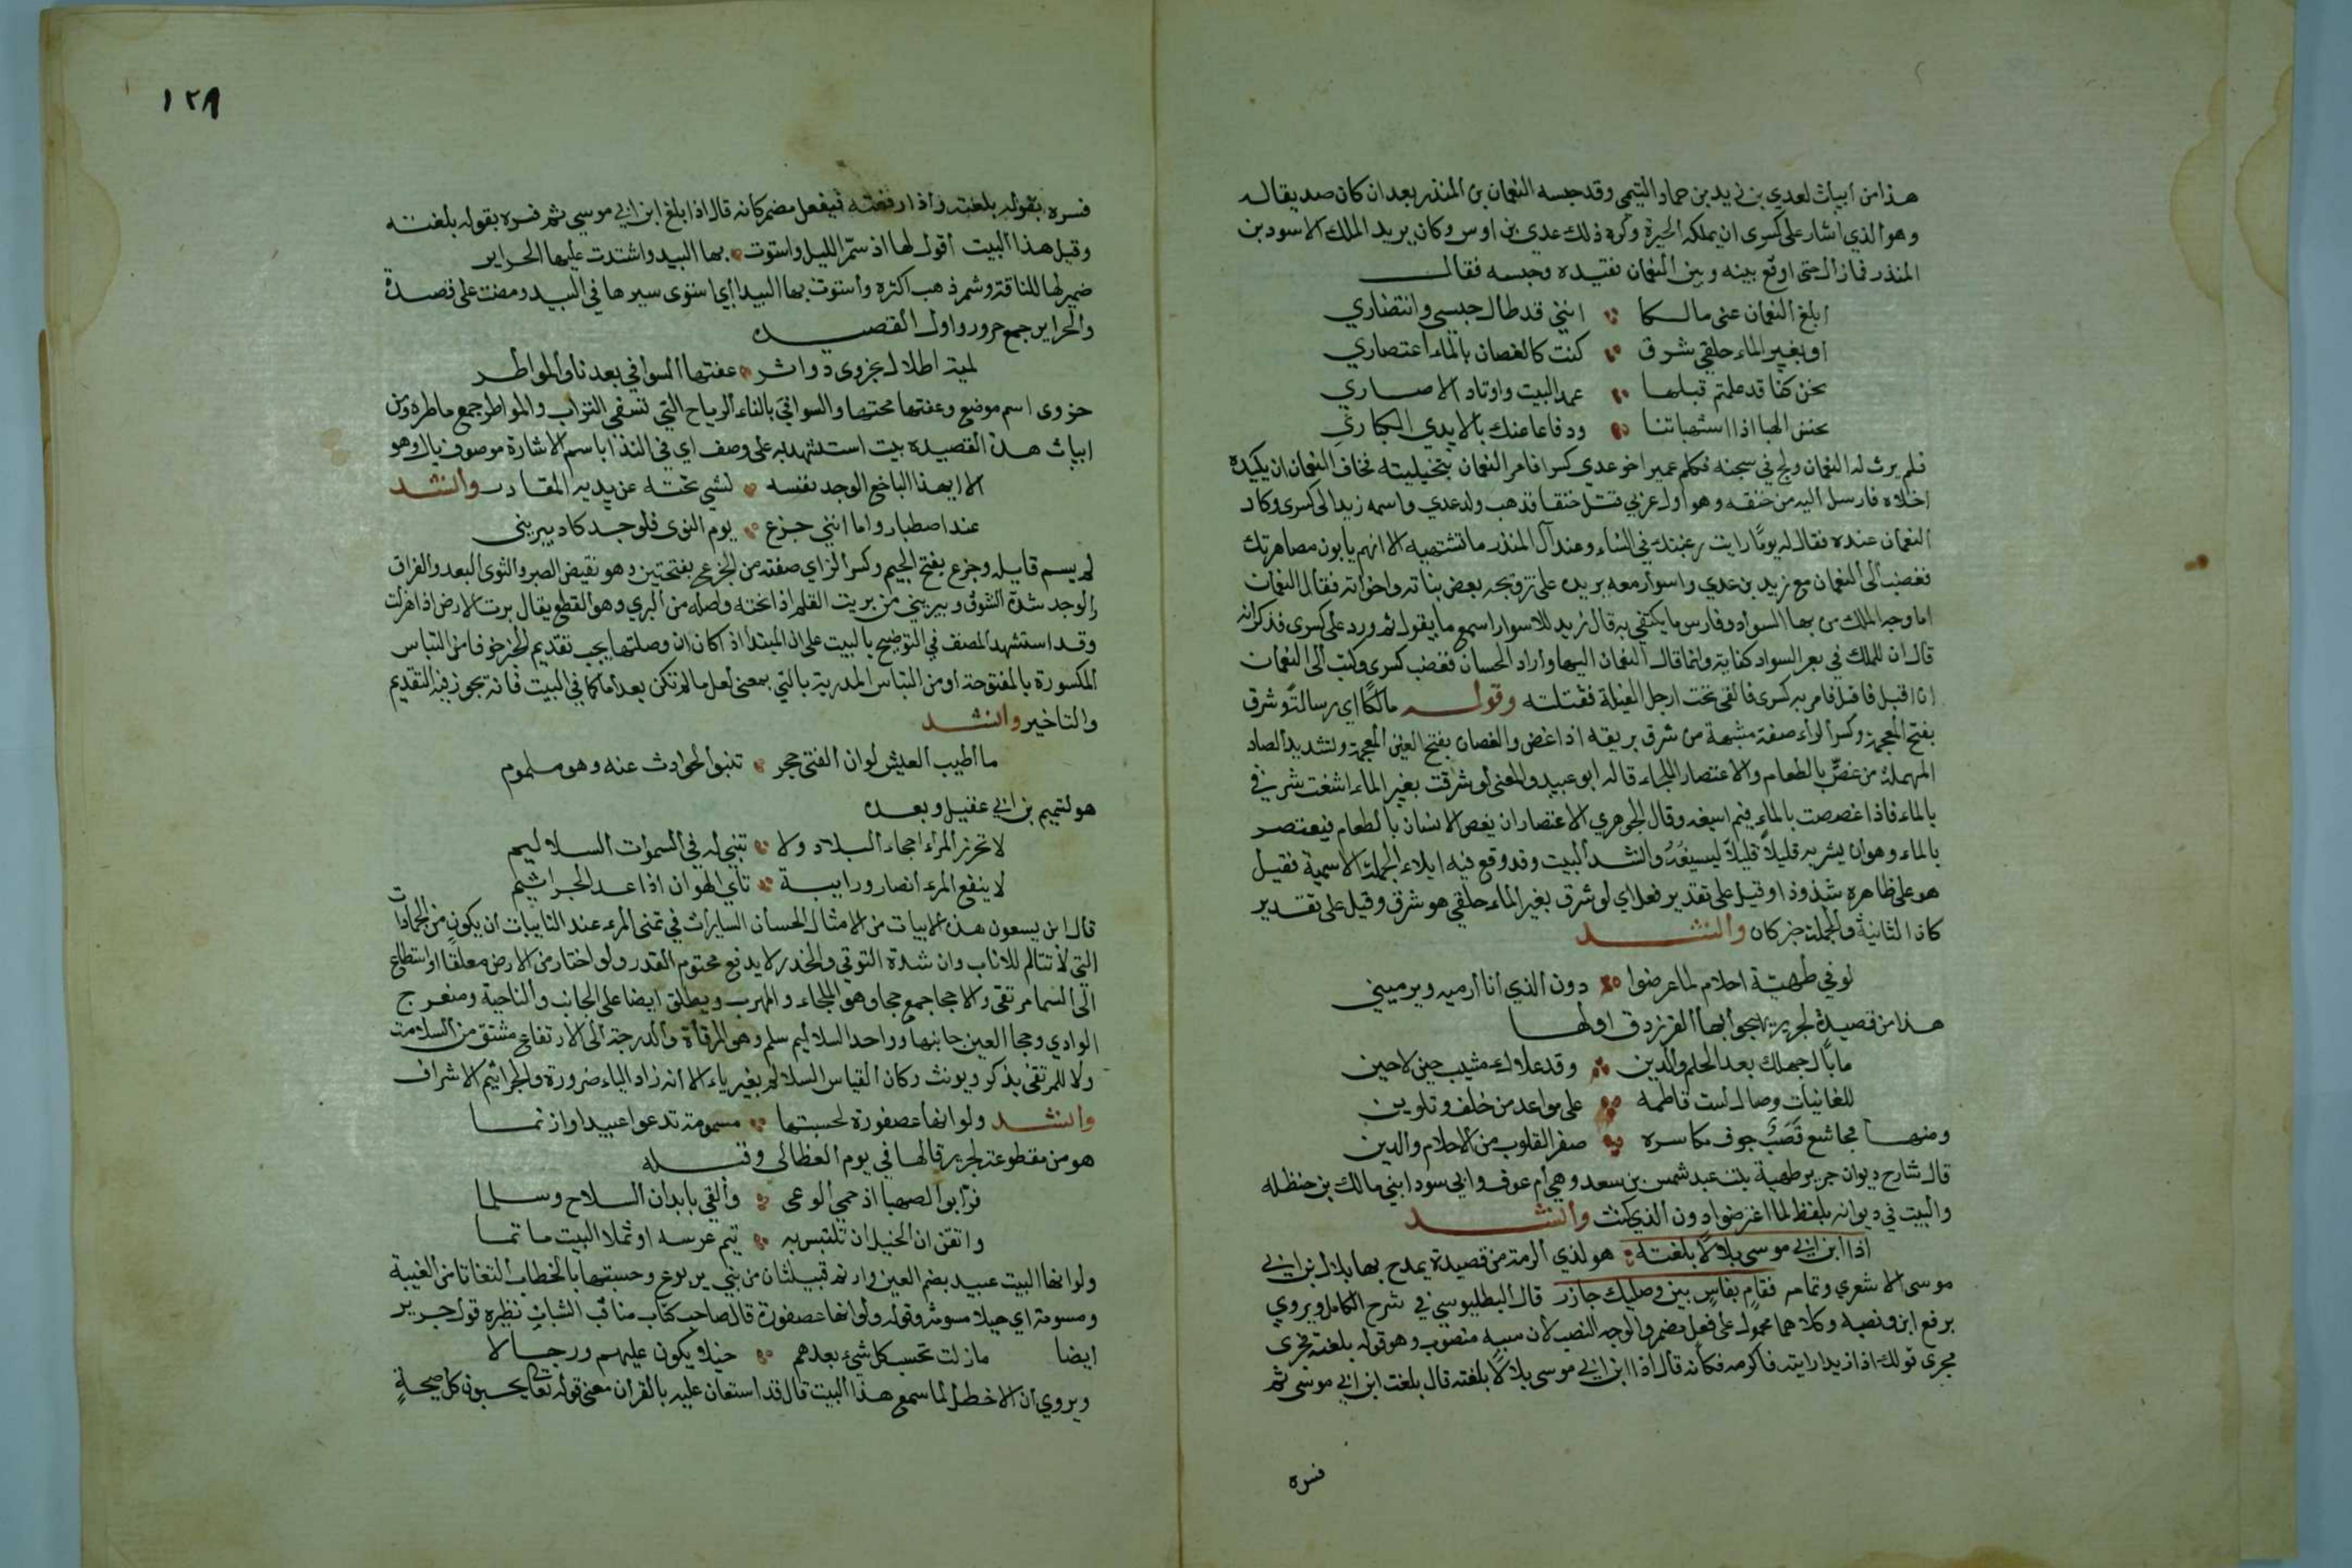 هذا من ابيات لعدي بن زيد بن حماد التيمي وقد حبسه النعمان بن المنذر بعد ان كان صديقا له
وهو الذي اشار على كسرى ان يملكه الحيرة وكره ذلك عدي بن اوس وكان يريد الملك الاسود بن
المنذر فما زال حتى اوقع بينه وبين النعمان فقيده وحبسه فقال
ابلغ النعمان عني مالكا انني قد طال حبسي وانتضاري
او بغير الماء حلقي شرق كنت كالغصان بالماء اعتصاري
نحن كنا قد علمتم قبلها عمد البيت واوتاد الاصاري
نحسن الهبا اذا استهباتنا ودفاعا عنك بالايدي الكباري
فلم يرث له النعمان ولج في سجنه فكلم عمير اخو عدي كسرا فامر النعمان بتخيليته فخاف النعمان ان يكيده
اخلاه فارسل اليه من خنقه وهو اول عربي قتل خنقا فذهب ولد عدي واسمه زيد الى كسرى وكاد
النعمان عنده فقال له يوما رايت رغبتك في النساء وعند آل المنذر ما تشتهيه الا انهم يابون مصاهرتك
فغضب الى النعمان مع زيد بن عدي واسوار معه يريده على تزويجه بعض بناته واخواته فقال النعمان
اما وجد الملك من بها السواد وفارس ما يكتفي به قال زيد للاسوار اسمع ما يقول ثم ورد على كسرى فذكر انه
قال ان للملك في بعر السواد كفاية وانما قال النعمان اليها واراد الحسان فغضب كسرى وكتب الى النعمان
ان اقبل فاقبل فامر به كسرى فالقي تحت ارجل الفيلة فقتلته وقوله مالكا اي رسالة وشرق
بفتح المعجمة وكسر الراء صفة مشبهة من شرق بريقه اذا غض والغصان بفتح الغين المعجمة وتشديد الصاد
المهملة من غص بالطعام والاعتصار الملجاء قاله ابو عبيد والمعنى لو شرقت بغير الماء اشغت شرفي
بالماء فاذا غصصت بالماء فبم اسيغه وقال الجوهري الاعتصار ان يغص الانسان بالطعام فيعتصر
بالماء وهو ان يشربه قليلا قليلا ليسيغه وانشد البيت وقد وقع فيه ايلاء الجملة الاسمية فقيل
هو على ظاهره شذوذا وقيل على تقدير فعل اي لو شرق بغير الماء حلقي هو شرق وقيل على تقدير
كاذا الثانية والجملة خبر كان وانشد
لو في طهية احلام لما عرضوا دون الذي انا ارميه ويرميني
هذا من قصيدة لجرير يهجو بها الفرزدق اولها
ما بال جهلك بعد الحلم والدين وقد علاك مشيب حين لا حين
للغانيات وصال لست قاطمه على مواعد من خلف وتلوين
ومنها مجاشع قصب جوف مكاسره صفر القلوب من الاحلام والدين
قال شارح ديوان جرير طهية بنت عبد شمس بن سعد وهي ام عوف وابي سود ابني مالك بن حنظله
والبيت في ديوانه بلفظ لما اعرضوا دون الذي كنت وانشد
اذا ابن ابي موسى بلالا بلغته هو لذي الرمة من قصيدة يمدح بها بلال بن ابي
موسى الاشعري وتمامه فقام بفاس بين وصليك جازر قال البطليوسي في شرح الكامل ويروي
برفع ابن ونصبه وكلاهما محمول على فعل مضمر والوجه النصب لان سببه منصوب وهو قوله بلغته مجرى
مجرى قولك اذا زيدا رايته فاكرمه فكانه قال اذا ابن ابي موسى بلالا بلغته قال بلغت ابن ابي موسى ثم
فسره
١٢٨
فسره بقوله بلغته واذا رفعته فبفعل مضمر كانه قال اذا بلغ ابن ابي موسى ثم فسره بقوله بلغته
وقبل هذا البيت اقول لها اذ شمر الليل واستوت بها البيد واشتدت عليها الحراير
ضمير لها للناقة وشمر ذهب اكثره واستوت بها البيد اي استوى سيرها في البيد ومضت على قصده
والحراير جمع حرور واول القصيده
لمية اطلال بحزوى دواثر عفتها السوافي بعدنا والمواطر
حزوى اسم موضع وعفتها محتها والسوافي بالفاء الرياح التي تسفي التراب والمواطر جمع ماطرة ومن
ابيات هذه القصيده بيت استشهد به على وصف اي في الندا باسم الاشارة موصوف بال وهو
الا ايهذا الباخع الوجد نفسه لشي نحته عن يديه المقادر وانشد
عندا صطبار واما انني جزع يوم النوى فلوجد كاد يبريني
لم يسم قايله وجزع بفتح الجيم وكسر الزاي صفة من الجزع بفتحتين وهو نقيض الصبر والنوى البعد والفراق
والوجد شدة الشوق ويبريني من بريت القلم اذا نحته واصله من البري وهو القطع يقال برت الارض اذا هزلت
وقد استشهد المصنف في التوضيح بالبيت على ان المبتدا اذ كان ان وصلتها يجب تقديم الخبر خوفا من التباس
المكسورة بالمفتوحة او من التباس المدرية بالتي بمعنى لعل ما لم تكن بعد اما كما في البيت فانه يجوز فيه التقديم
والتاخير وانشد
ما اطيب العيش لو ان الفتى حجر تنبوا الحوادث عنه وهو ملموم
هو لتميم بن ابي عقيل وبعده
لا تحرز المرا احجاء البلاد ولا تبني له في السموات السلاليم
لا ينفع المرء انصار ورابية تابى الهوان اذا عد الجراثيم
قال ابن يسعون هذه الابيات من الامثال الحسان السايرات في تمني المرء عند النايبات ان يكون من الجمادات
التي لا تتالم للانياب وان شدة التوقي والحذر لا يدفع محتوم القدر ولو اختار من الارض معلقا او استطاع
الى السما مرتقى والاحجا جمع حجا وهو الملجاء والمهرب ويطلق ايضا على الجانب والناحية ومنعرج
الوادي وحجا العين جانبها وواحد السلاليم سلم وهو المرقاة والدرجة الى الارتفاع مشتق من السلامت
ولا للمرتقى يذكر ويونث وكان القياس السلالم بغير ياء الا انه زاد الياء ضرورة والجراثيم الاشراف
وانشد ولو انها عصفورة لحسبتها مسومة تدعو عبيدا وازنما
هو من مقطوعة لجرير قالها في يوم العظالى وقبله
فر ابو الصهبا اذ حمي الوغى والقي بابدان السلاح وسلما
وايقن ان الخيل ان تلتبس به تيم عرسه او تملا البيت ماتما
ولو انها البيت عبيد بضم العين وازنم قبيلتان من بني يربوع وحسبتها بالخطاب التفاتا من الغيبة
ومسومة اي خيلا مسومة وقوله ولو انها عصفورة قال صاحب كتاب مناقب الشبان نظيره قول جرير
ايضا ما زلت تحسب كل شيء بعدهم خيلا يكون عليهم ورجالا
ويروي ان الاخطل لما سمع هذا البيت قال قد استعان عليه بالقران معنى قوله تعالى يحسبون كل صيحة